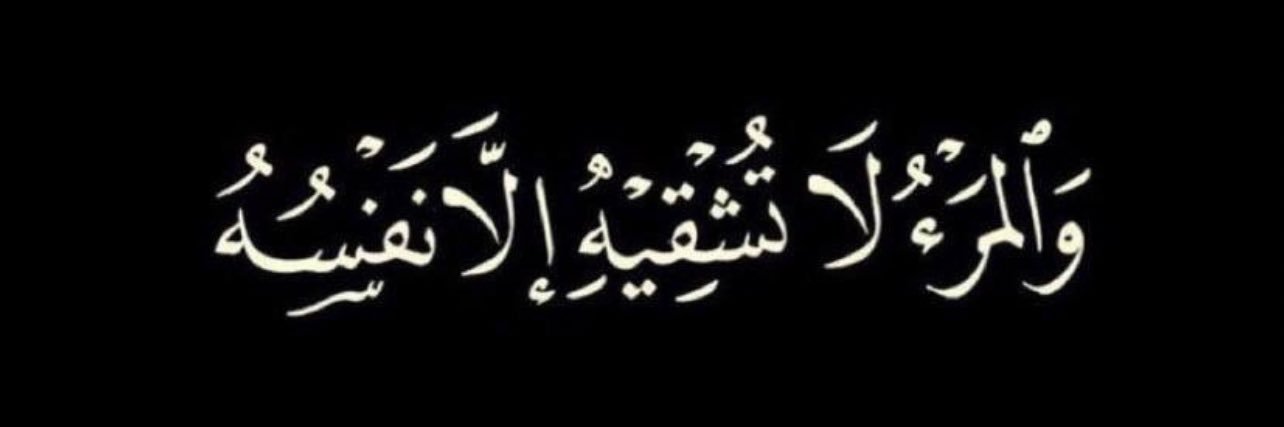 وَٱلمَرْءُ لَا تُشْقِيْهِ إِلَّا نَفْسُهُ